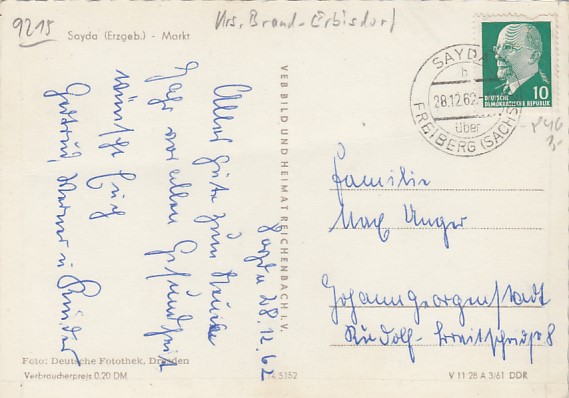 9215
Krs. Brand-Erbisdorf
Sayda (Erzgeb.) - Markt
Sayda 28.12.62
Alles Gute zum Neuen
Jahr vor allem Gesundheit
wünscht Euch
Gertraud, Werner u. Kinder
VEB BILD UND HEIMAT REICHENBACH I. V.
SAYDA
b
28.12.62
über
FREIBERG (SACHS)
10
DEUTSCHE
DEMOKRATISCHE REPUBLIK
Familie
Max Unger
Johanngeorgenstadt
Rudolf-Breitscheidstr 8
Foto: Deutsche Fotothek, Dresden
Verbraucherpreis 0,20 DM
5152
V 11 28 A 3/61 DDR